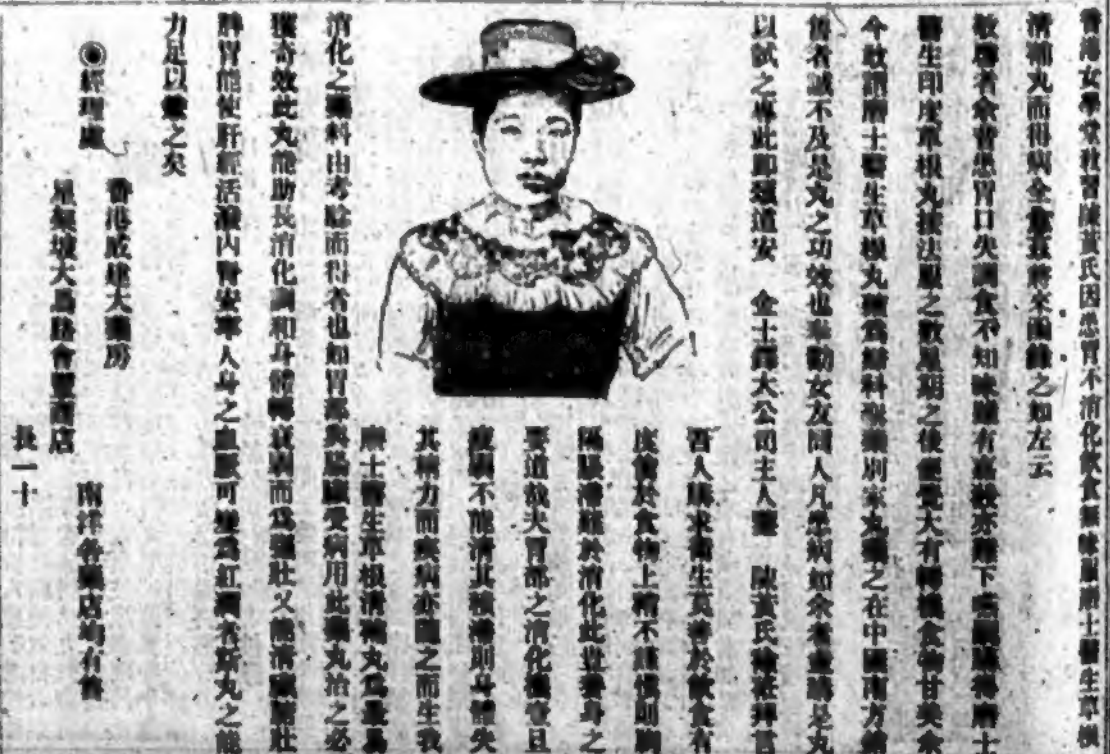 香港女學堂教習陳黃氏因患胃不消化飲食無味服廖士醫生草根
清補丸而得病全愈茲將來函錄之如左云
敬啓者余曾患胃口失調食不知味雖有嘉殽亦難下嚥
醫生印度草根丸按法服之數星期之後便覺大有轉機食物甘美余
今敢謂廖士醫生草根丸
舊者誠不及是丸之功效也奉勸女友同人凡患病如余者應購是丸
以試之專此即頌道安 金士鐸大公司主人鑒 陳黃氏檢衽拜啓
吾人欲求衞生莫善於飲食有
度倘於食物上稍不謹慎則胸
隔壅滯難於消化此豈養身之
要道哉夫胃部之消化機官旦
壅塞不能清其積滯則身體失
其精力而疾病亦隨之而生我
廖士醫生草根清補丸爲最爲
消化之藥料由考驗而得者也如胃部與腸臟受病用此藥丸治之必
獲奇效此丸能助長消化調和身體轉衰弱而爲强壯又能清臟腑壯
脾胃能使肝經活潑內腎安寧人身之血脈可變爲紅潤者斯丸之能
力足以致之矣
◉經理處
香港威建大藥房
星架坡大馬路會豐西店
南洋各藥店均有售
長一十